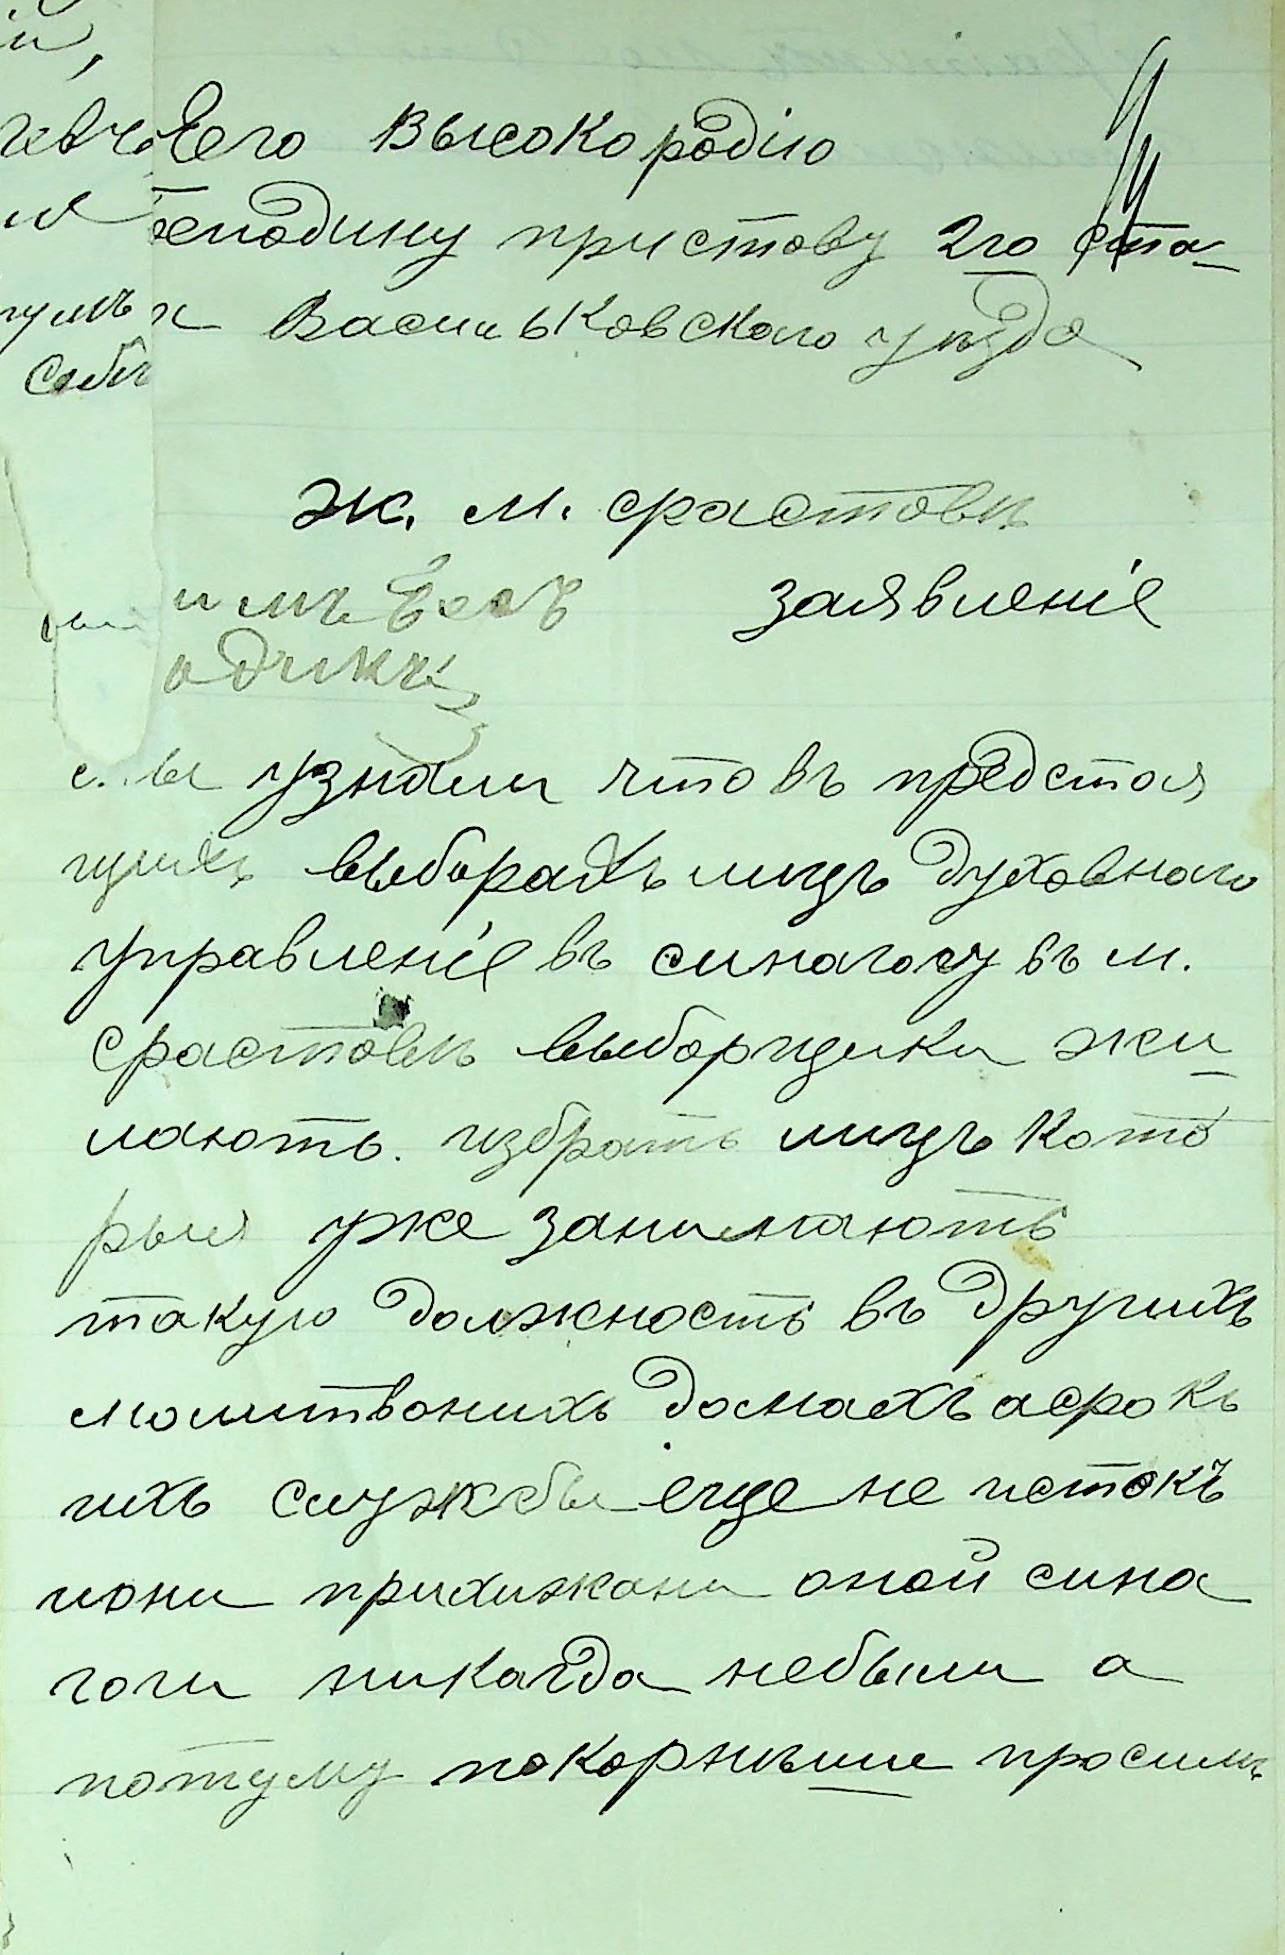 Его Высокородію
господину приставу 2го ста-
на Васильковскаго уѣзда
Ж. м. Фрастовѣ
заявленіе
мы узнали что въ предстоя
щихъ выборахъ лицъ духовнаго
управленіе въ синагогу въ м.
Фрастовѣ выборщики жи-
лають избрать лицъ кото
рыя уже занимають
такую должность въ другихъ
молитвоних домахъ асрокъ
ихъ службы еще не истокъ
иони прихижани оной сина
гоги никагда небыли а
потуму покорнѣише просимъ